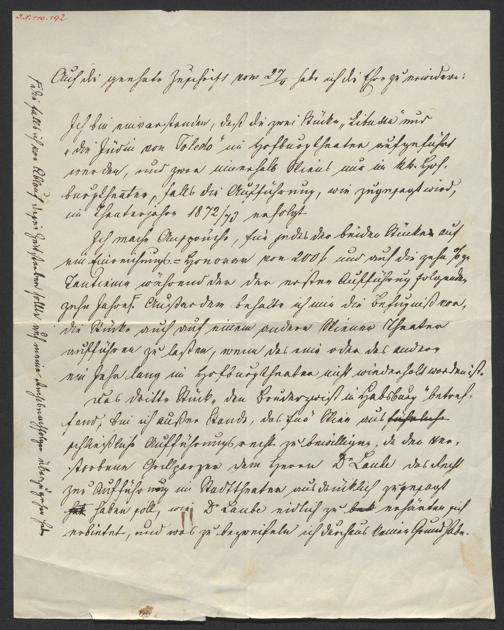 I.N. 110.192
Auf die geehrte Zuschrift vom 27/5 habe ich die Ehre zu erwidern:
Ich bin einverstanden, daß die zwei Stücke „Libussa" und
„die Jüdin von Toledo" im Hofburgtheater aufgeführt
werden, und zwar innerhalb Wiens nur im k.k. Hof-
burgtheater, falls die Aufführung, wie zugesagt wird,
im Theaterjahre 1872/73 erfolgt.
Ich mache Ansprüche, für jedes der beiden Stücke auf
ein Honorar von 200 f und auf die zehn %
Tantieme während der der ersten Aufführung folgenden
zehn Jahre. Außerdem behalte ich mir die Befugniß vor,
die Stücke auch auf einem andern Wiener Theater
aufführen zu lassen, wenn das eine oder das andere
ein Jahr lang im Hofburgtheater nicht wiederholt worden ist.
Das dritte Stück, den „Bruderzwist in Habsburg" betref-
fend, bin ich außer Stande, das für Wien aus
schließliche Aufführungsrecht zu bewilligen, da der ver-
storbene Grillparzer dem Herrn Dr Laube das Recht
zur Aufführung im Stadttheater ausdrücklich zugesagt
haben soll, wie Dr Laube eidlich zu erhärten sich
erbietet, und was zu bezweifeln ich durchaus keinen Grund habe.
falls ich vor Ablauf dieser Zeit sterben sollte, auf meine überzugehen hat